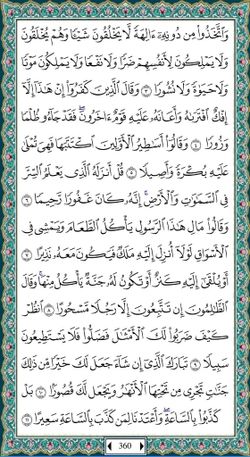 وَٱتَّخَذُوا۟ مِن دُونِهِۦٓ ءَالِهَةً لَّا يَخْلُقُونَ شَيْـًٔا وَهُمْ يُخْلَقُونَ
وَلَا يَمْلِكُونَ لِأَنفُسِهِمْ ضَرًّا وَلَا نَفْعًا وَلَا يَمْلِكُونَ مَوْتًا
وَلَا حَيَوٰةً وَلَا نُشُورًا ٣ وَقَالَ ٱلَّذِينَ كَفَرُوٓا۟ إِنْ هَٰذَآ إِلَّآ
إِفْكٌ ٱفْتَرَىٰهُ وَأَعَانَهُۥ عَلَيْهِ قَوْمٌ ءَاخَرُونَ ۖ فَقَدْ جَآءُو ظُلْمًا
وَزُورًا ٤ وَقَالُوٓا۟ أَسَٰطِيرُ ٱلْأَوَّلِينَ ٱكْتَتَبَهَا فَهِىَ تُمْلَىٰ
عَلَيْهِ بُكْرَةً وَأَصِيلًا ٥ قُلْ أَنزَلَهُ ٱلَّذِى يَعْلَمُ ٱلسِّرَّ
فِى ٱلسَّمَٰوَٰتِ وَٱلْأَرْضِ ۚ إِنَّهُۥ كَانَ غَفُورًا رَّحِيمًا ٦
وَقَالُوا۟ مَالِ هَٰذَا ٱلرَّسُولِ يَأْكُلُ ٱلطَّعَامَ وَيَمْشِى فِى
ٱلْأَسْوَاقِ ۙ لَوْلَآ أُنزِلَ إِلَيْهِ مَلَكٌ فَيَكُونَ مَعَهُۥ نَذِيرًا ٧
أَوْ يُلْقَىٰٓ إِلَيْهِ كَنزٌ أَوْ تَكُونُ لَهُۥ جَنَّةٌ يَأْكُلُ مِنْهَا ۚ وَقَالَ
ٱلظَّٰلِمُونَ إِن تَتَّبِعُونَ إِلَّا رَجُلًا مَّسْحُورًا ٨ ٱنظُرْ
كَيْفَ ضَرَبُوا۟ لَكَ ٱلْأَمْثَٰلَ فَضَلُّوا۟ فَلَا يَسْتَطِيعُونَ
سَبِيلًا ٩ تَبَارَكَ ٱلَّذِىٓ إِن شَآءَ جَعَلَ لَكَ خَيْرًا مِّن ذَٰلِكَ
جَنَّٰتٍ تَجْرِى مِن تَحْتِهَا ٱلْأَنْهَٰرُ وَيَجْعَل لَّكَ قُصُورًۢا ١٠ بَلْ
كَذَّبُوا۟ بِٱلسَّاعَةِ ۖ وَأَعْتَدْنَا لِمَن كَذَّبَ بِٱلسَّاعَةِ سَعِيرًا ١١
360